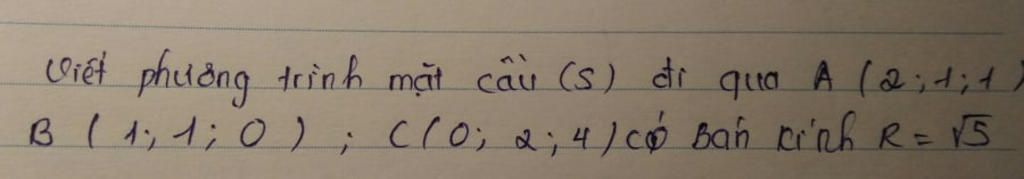 Viết phương trình mặt cầu (S) đi qua A (2;1;1)
B (1;1;0) ; C(0;2;4) có Bán kính R = √5